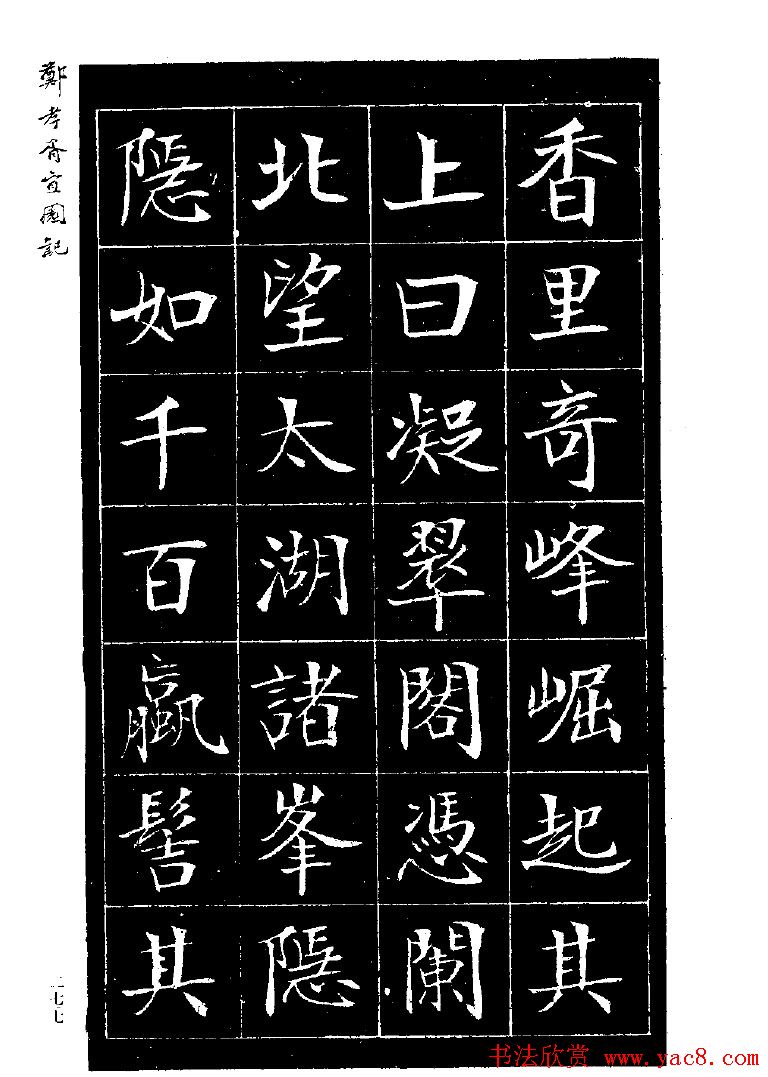 香里奇峰崛起其
上曰凝翠閣憑闌
北望太湖諸峯隱
隱如千百蠃髻其
鄭孝胥宜園記
二七七
书法欣赏 www.yac8.com